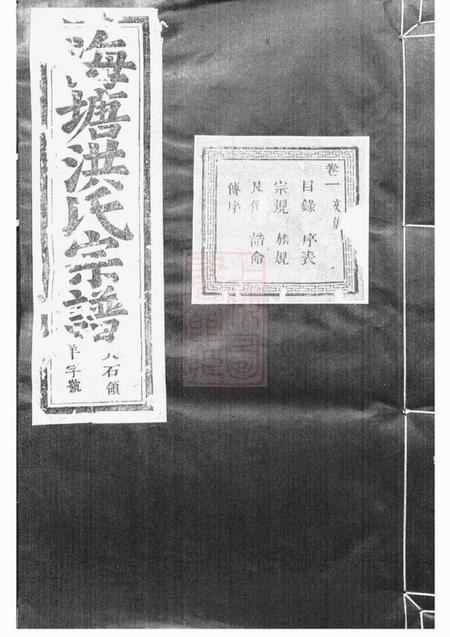 海塘洪氏宗譜
石領
字號
卷一
目錄 序表
宗規 族規
誥命
傳序